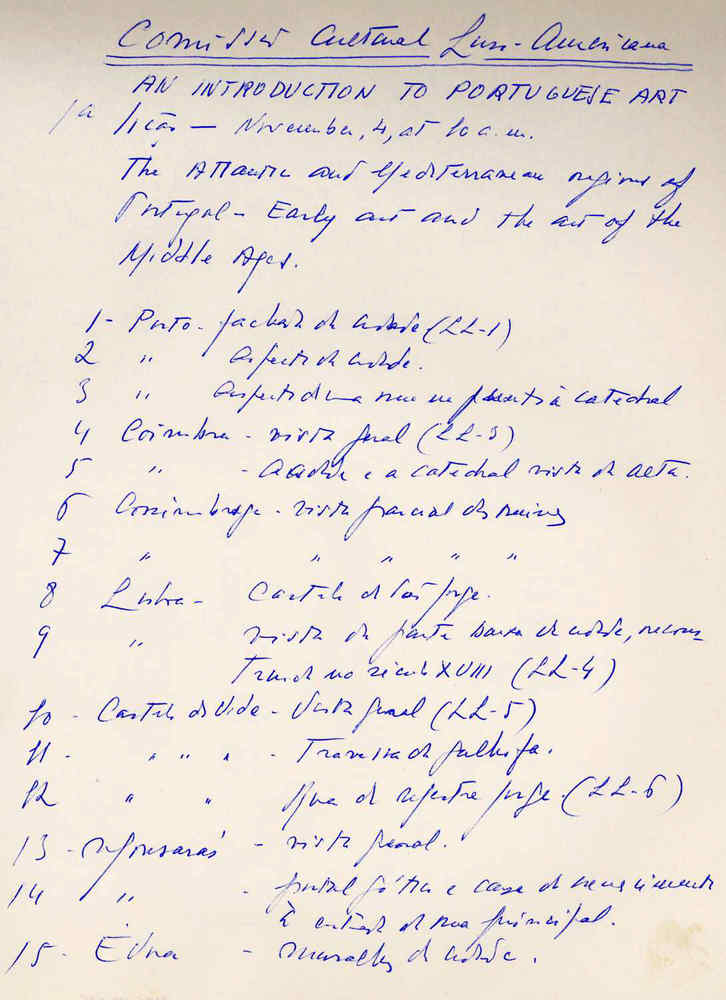 Comissão Cultural Luso-Americana
AN INTRODUCTION TO PORTUGUESE ART
1ª lição — November, 4, at 10 a.m.
The Atlantic and Mediterranean regions of
Portugal - Early art and the art of the
Middle Ages.
1 - Porto - fachada da cidade (LL-1)
2 " Aspecto da cidade.
3 " Aspecto duma rua em frente à catedral
4 Coimbra - vista geral (LL-3)
5 " - A cidade e a catedral vista da alta.
6 Conimbriga - vista parcial das ruinas
7 " " " " "
8 Lisboa - Castelo de São Jorge.
9 " vista da parte baixa da cidade, recons-
truida no século XVIII (LL-4)
10 - Castelo de Vide - Vista geral (LL-5)
11 - " " " - Travessa da
12 " " Rua de Mestre Jorge. (LL-6)
13 - Monsaraz - vista geral.
14 " - portal gótico e casa
à entrada da rua principal.
15 - Évora - muralhas da cidade.